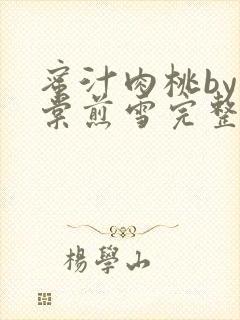 蜜汁肉桃by
棠煎雪完整
楊學山